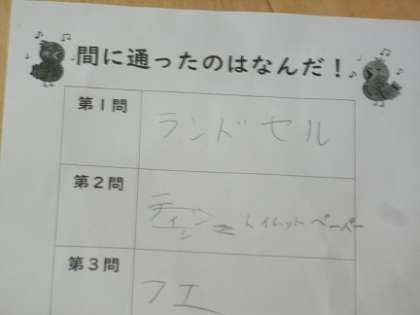 間に通ったのはなんだ！
第1問
ランドセル
第2問
トイレットペーパー
第3問
フエ